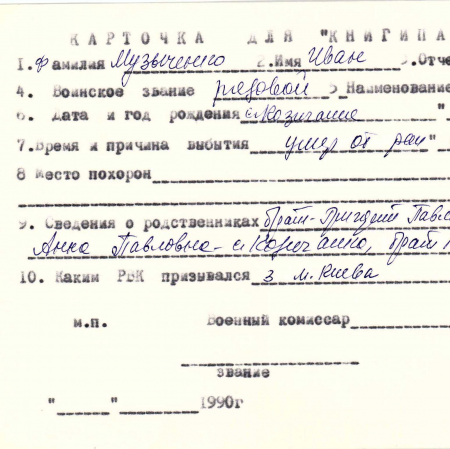 КАРТОЧКА ДЛЯ "КНИГИ ПА
1. Фамилия Музыченко 2. Имя Иван 3. Отче
4. Воинское звание рядовой 5 Наименование
6. Дата и год рождения "
7. Время и причина выбытия умер от ран "
8 Место похорон
9. Сведения о родственниках брат - Григорий Павл
Анна Павловна - с. , брат
10. Каким РВК призывался з м. Києва
м.п. Военный комиссар
звание
"___"______1990г